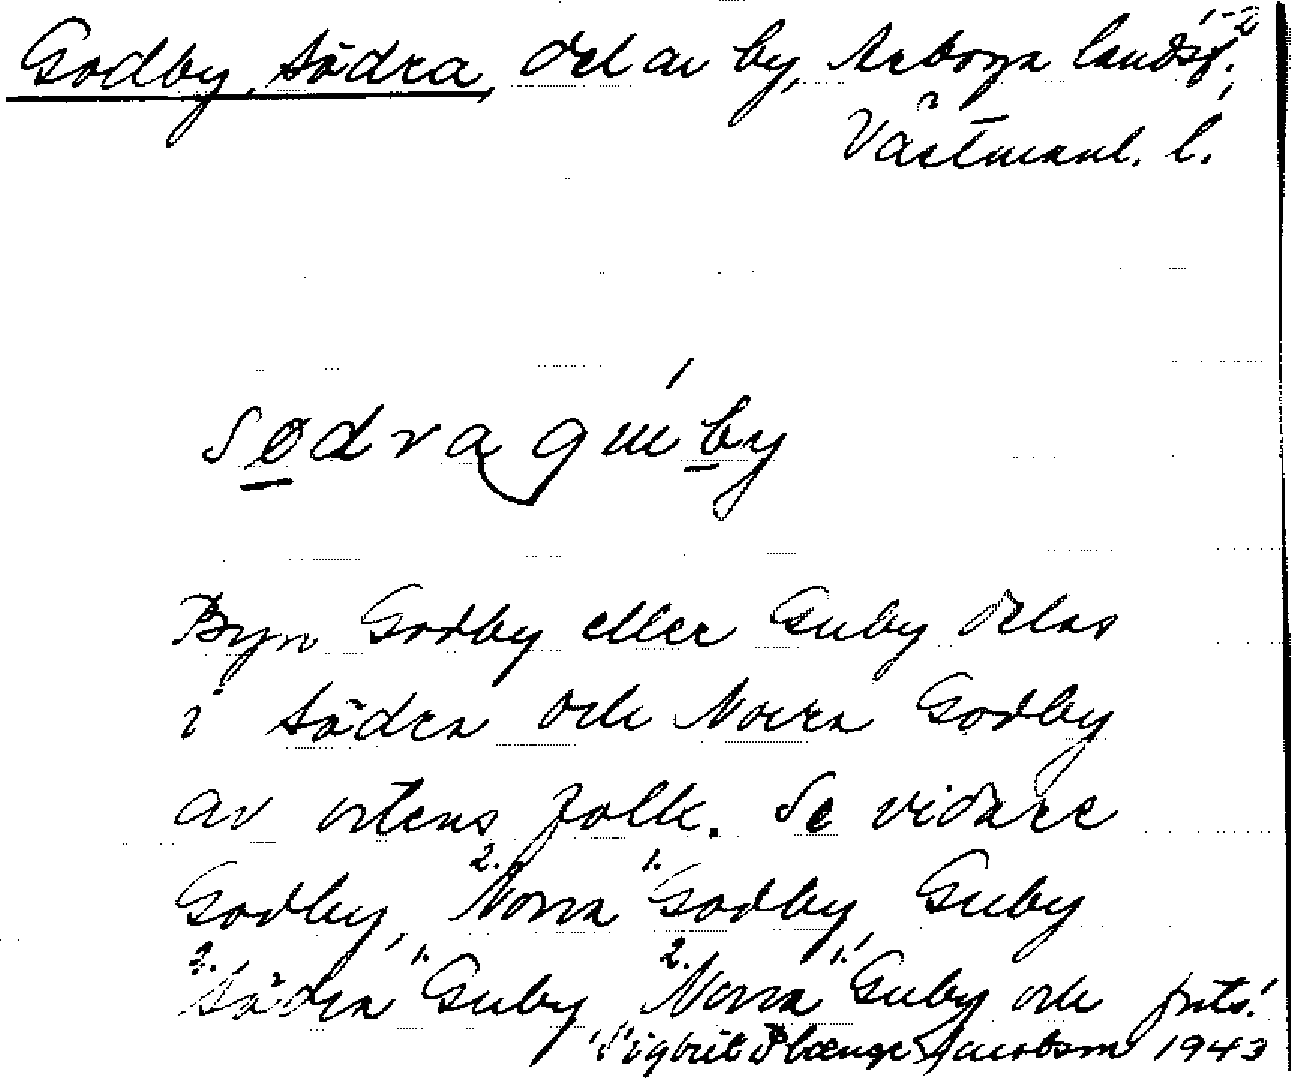 Godby, Södra, del av by, Arboga landsf. 1-2
Västmanl. l.
södra guby
Byn Godby eller Guby delas
i Södra och Norra Godby
av ortens folk. Se vidare
Godby, 2. Norra 1. Godby, Guby
2. Södra 1. Guby, 2. Norra 1. Guby och forts!
Jacobson 1943